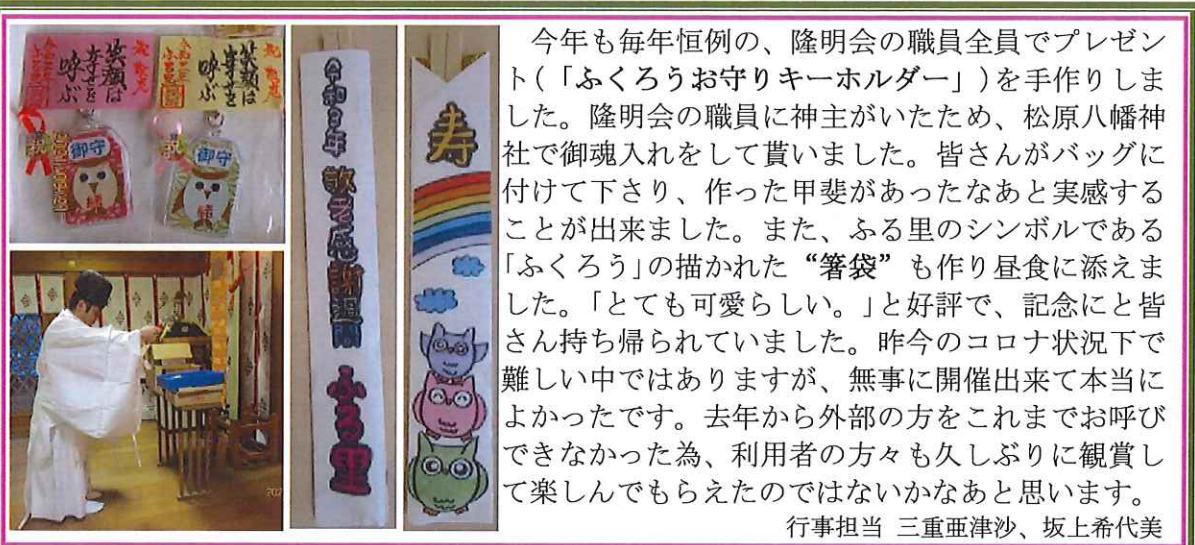 祝 敬老
笑顔は
幸せを
呼ぶ
祝 敬老
笑顔は
幸せを
呼ぶ
御守
御守
令和3年 敬老感謝週間 ふる里
寿
今年も毎年恒例の、隆明会の職員全員でプレゼン
ト(「ふくろうお守りキーホルダー」)を手作りしま
した。隆明会の職員に神主がいたため、松原八幡神
社で御魂入れをして貰いました。皆さんがバッグに
付けて下さり、作った甲斐があったなあと実感する
ことが出来ました。また、ふる里のシンボルである
「ふくろう」の描かれた“箸袋”も作り昼食に添えま
した。「とても可愛らしい。」と好評で、記念にと皆
さん持ち帰られていました。昨今のコロナ状況下で
難しい中ではありますが、無事に開催出来て本当に
よかったです。去年から外部の方をこれまでお呼び
できなかった為、利用者の方々も久しぶりに観賞し
て楽しんでもらえたのではないかなあと思います。
行事担当 三重亜津沙、坂上希代美